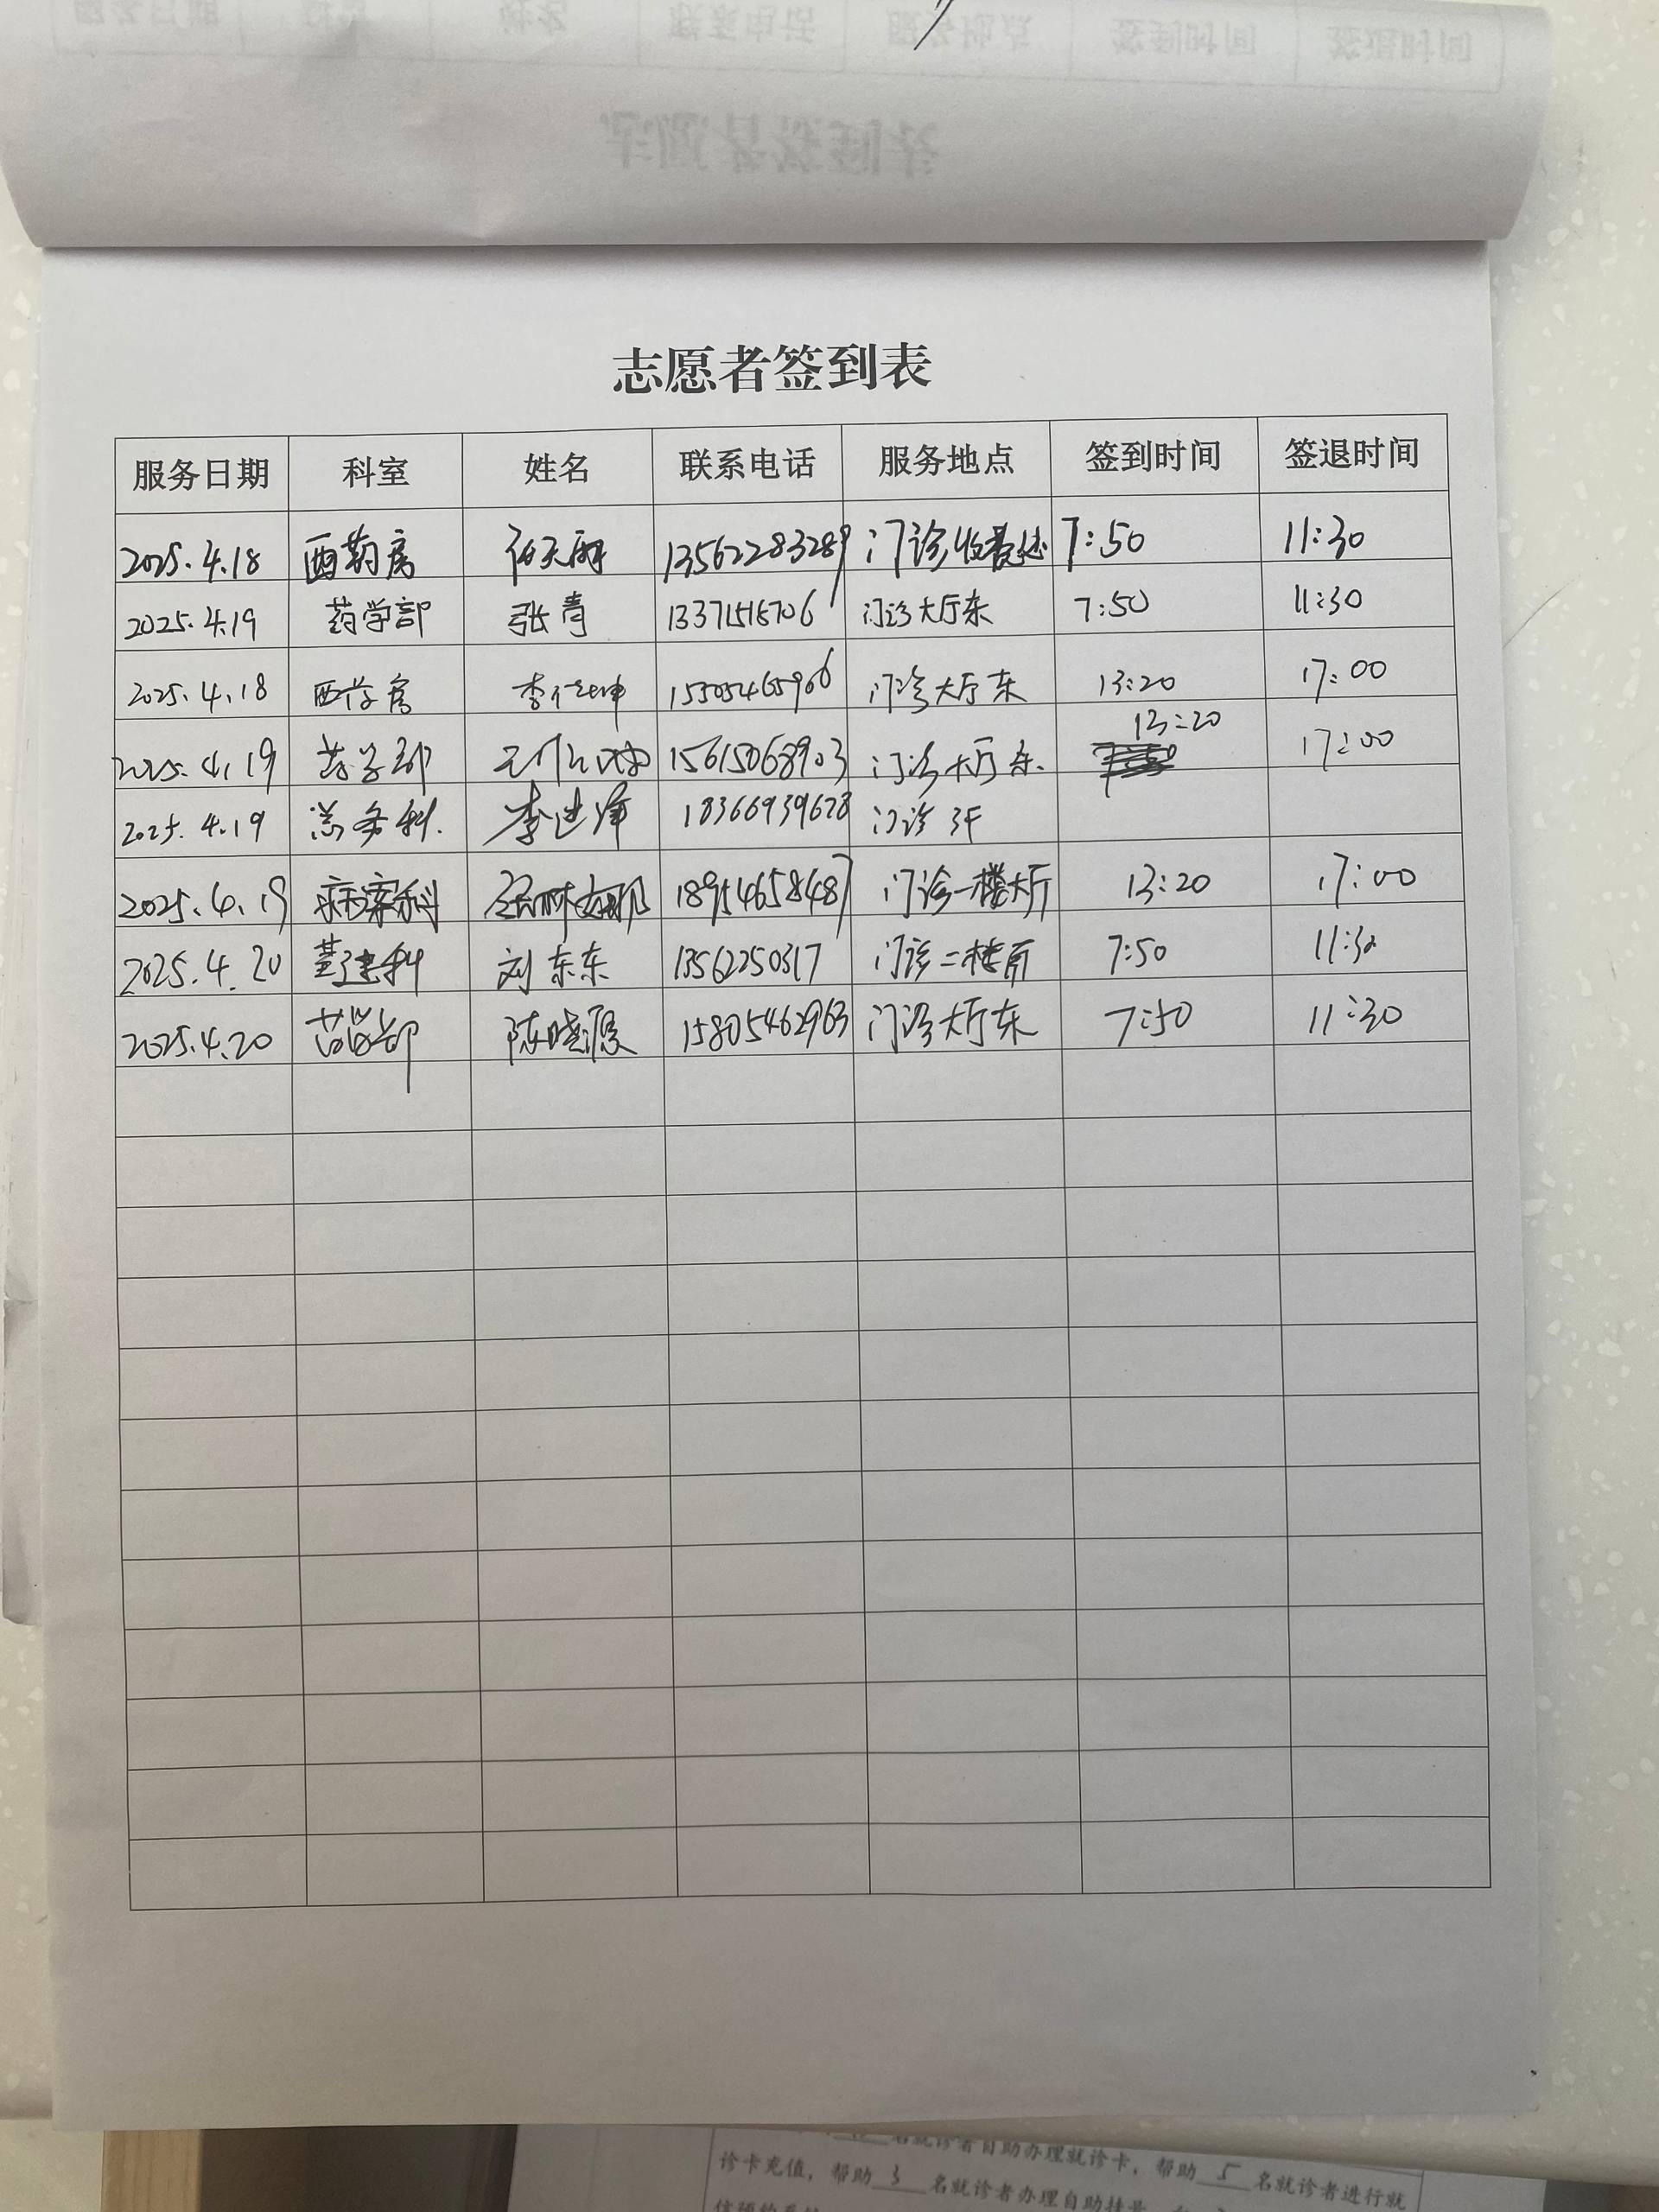 志愿者签到表
服务日期 科室 姓名 联系电话 服务地点 签到时间 签退时间
2025.4.18 西药房 13562283289 门诊收费处 7:50 11:30
2025.4.19 药学部 张青 13371515706 门诊大厅东 7:50 11:30
2025.4.18 西药房 15505465906 门诊大厅东 13:20 17:00
2025.4.19 药学部 15615068903 门诊大厅东 13:20 17:00
2025.4.19 总务科 18366939628 门诊3F
2025.4.19 病案科 18954658487 门诊一楼大厅 13:20 17:00
2025.4.20 刘东东 13562250317 门诊二楼南 7:50 11:30
2025.4.20 药学部 陈晓源 15805462963 门诊大厅东 7:50 11:30
名就诊者自助办理就诊卡，帮助 5 名就诊者进行就
诊卡充值，帮助 3 名就诊者办理自助挂号